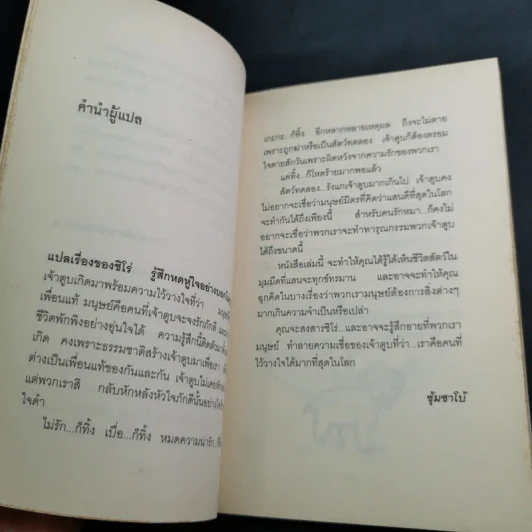 คำนำผู้แปล
แปลเรื่องของชิโร่ รู้สึกหดหู่ใจอย่างบอกไม่ถูก
เจ้าตูบเกิดมาพร้อมความไว้วางใจที่ว่า
เพื่อนแท้ มนุษย์คือคนที่เจ้าตูบจะจงรักภักดี
ชีวิตพักพิงอย่างอุ่นใจได้ ความรู้สึกนี้ติดตัวมา
เกิด คงเพราะธรรมชาติสร้างเจ้าตูบมาเพื่อเรา
ต่างเป็นเพื่อนแท้ของกันและกัน เจ้าตูบไม่เคย
แต่พวกเราสิ กลับหักหลังหัวใจภักดีนั้นอย่าง
ใจดำ
ไม่รัก...ก็ทิ้ง เบื่อ...ก็ทิ้ง หมดความน่ารัก..
เกะกะ...ก็ทิ้ง อีกหลากหลายเหตุผล ถึงจะไม่ตาย
เพราะถูกฆ่าหรือเป็นสัตว์ทดลอง เจ้าตูบก็ต้องตรอม
ใจตายสักวันเพราะผิดหวังจากความรักของพวกเรา
แค่ทิ้ง..ก็โหดร้ายมากพอแล้ว
สัตว์ทดลอง..รังแกเจ้าตูบมากเกินไป เจ้าตูบคง
ไม่อยากจะเชื่อว่ามนุษย์มิตรที่คิดว่าแสนดีที่สุดในโลก
จะทำกันได้ถึงเพียงนี้ สำหรับคนรักหมา...ก็คงไม่
อยากจะเชื่อว่าพวกเราจะทำทารุณกรรมพวกเจ้าตูบ
ได้ถึงขนาดนี้
หนังสือเล่มนี้ จะทำให้คุณได้รู้ได้เห็นชีวิตสัตว์ใน
มุมมืดที่แสนจะทุกข์ทรมาน และอาจจะทำให้คุณ
ฉุกคิดในบางเรื่องว่าพวกเรามนุษย์ต้องการสิ่งต่างๆ
มากเกินความจำเป็นหรือเปล่า
คุณจะสงสารชิโร่...และอาจจะรู้สึกอายที่พวกเรา
มนุษย์ ทำลายความเชื่อของเจ้าตูบที่ว่า...เราคือคนที่
ไว้วางใจได้มากที่สุดในโลก
ซุ้มซาโบ้